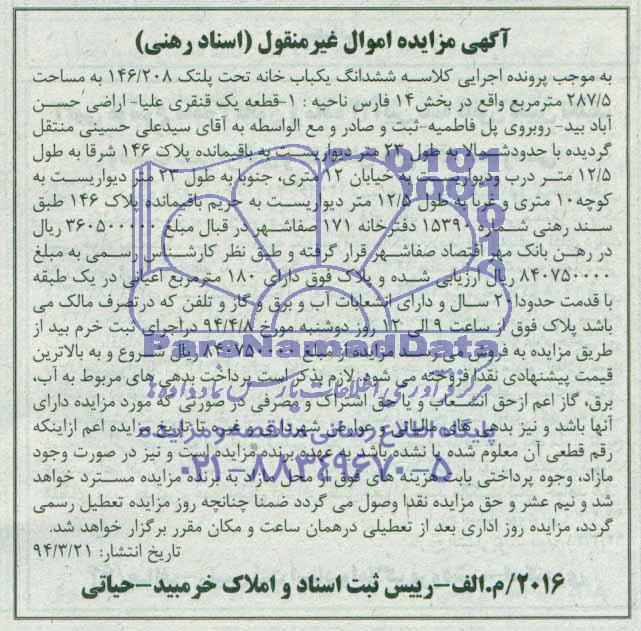 آگهی مزایده اموال غیرمنقول (اسناد رهنی)
به موجب پرونده اجرایی کلاسه ششدانگ یکباب خانه تحت پلتک ۱۴۶/۲۰۸ به مساحت
۲۸۷/۵ مترمربع واقع در بخش ۱۴ فارس ناحیه : ۱-قطعه یک قنقری علیا- اراضی حسن
آباد بید- روبروی پل فاطمیه-ثبت و صادر و مع الواسطه به آقای سیدعلی حسینی منتقل
گردیده با حدودشمالا به طول ۲۳ متر دیواریست به باقیمانده پلاک ۱۴۶ شرقا به طول
۱۲/۵ متر درب ودیواریست به خیابان ۱۲ متری، جنوبا به طول ۲۳ متر دیواریست به
کوچه۱۰ متری و غربا به طول ۱۲/۵ متر دیواریست به حریم باقیمانده پلاک ۱۴۶ طبق
سند رهنی شماره ۱۵۳۹۰ دفترخانه ۱۷۱ صفاشهر در قبال مبلغ ۳۶۰۵۰۰۰۰۰ ریال
در رهن بانک مهر اقتصاد صفاشهر قرار گرفته و طبق نظر کارشناس رسمی به مبلغ
۸۴۰۷۵۰۰۰۰ ریال ارزیابی شده و پلاک فوق دارای ۱۸۰ مترمربع اعیانی در یک طبقه
با قدمت حدودا۲۰ سال و دارای انشعابات آب و برق و گاز و تلفن که درتصرف مالک می
باشد پلاک فوق از ساعت ۹ الی ۱۲ روز دوشنبه مورخ ۹۴/۴/۸ دراجرای ثبت خرم بید از
طریق مزایده به فروش می رسد مزایده از مبلغ ۸۴۰۷۵۰۰۰۰ ریال شروع و به بالاترین
قیمت پیشنهادی نقدا فروخته می شود. لازم بذکر است پرداخت بدهی های مربوط به آب،
برق، گاز اعم ازحق انشعاب و یا حق اشتراک و مصرفی در صورتی که مورد مزایده دارای
آنها باشد و نیز بدهی های مالیاتی و عوارض شهرداری و غیره تا تاریخ مزایده اعم ازاینکه
رقم قطعی آن معلوم شده یا نشده باشد به عهده برنده مزایده است و نیز در صورت وجود
مازاد، وجوه پرداختی بابت هزینه های فوق از محل مازاد به برنده مزایده مسترد خواهد
شد و نیم عشر و حق مزایده نقدا وصول می گردد ضمنا چنانچه روز مزایده تعطیل رسمی
گردد، مزایده روز اداری بعد از تعطیلی درهمان ساعت و مکان مقرر برگزار خواهد شد.
تاریخ انتشار: ۹۴/۳/۲۱
۲۰۱۶/م.الف-رییس ثبت اسناد و املاک خرمبید-حیاتی
ParsNamadData
گردآوری اطلاعات پارس نماد داده ها
پایگاه اطلاع رسانی مناقصه و مزایده
۰۲۱-۸۸۳۴۹۶۷۰-۵